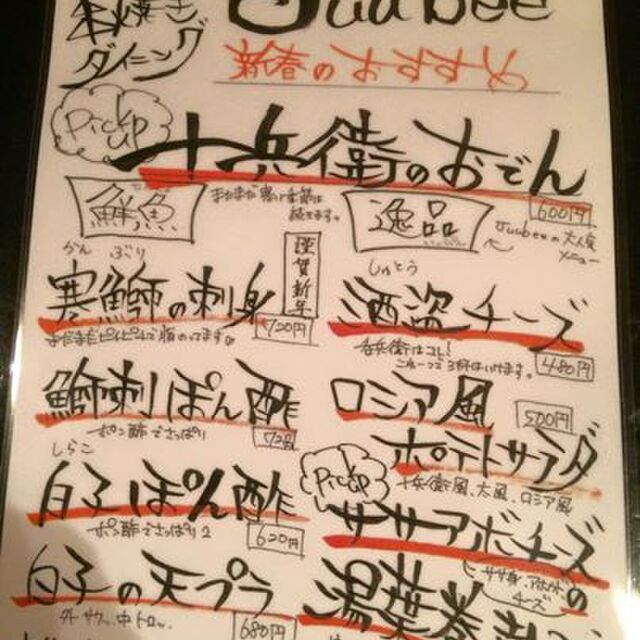 串焼き
ダイニング
Juubee
新春のおすすめ
Pick up
十兵衛のおでん
600円
鮮魚
まだまだ寒い季節は
続きます。
逸品
Juubeeの大人気
メニュー
謹賀新年
かん ぶり
寒鰤の刺身
720円
しゅとう
酒盗チーズ
480円
鰤刺ぽん酢
ポン酢でさっぱり
720
ロシア風
ポテトサラダ
500円
十兵衛風、大風、ロシア風
しらこ
白子ぽん酢
ポン酢でさっぱり2
620円
Pick up
ササアボチーズ
白子の天プラ
外サクッ、中トロッ、
680円
の
湯葉巻き